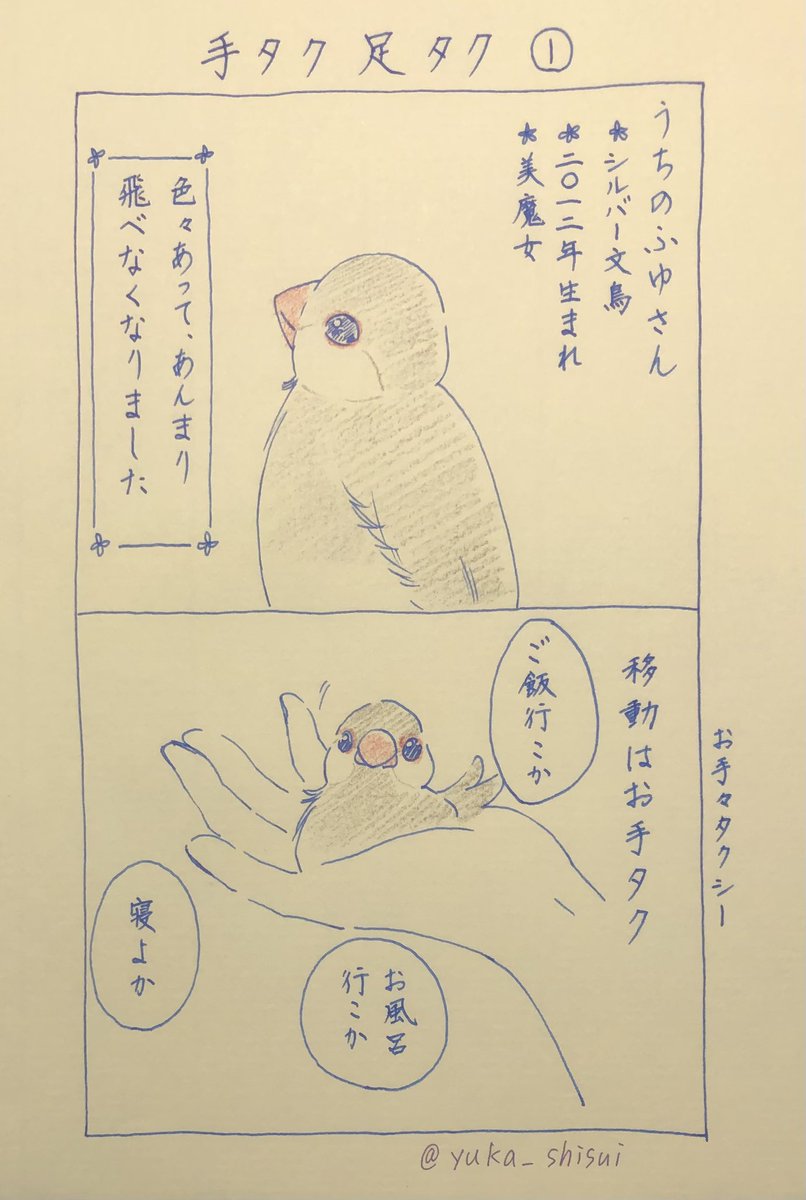 手タク 足タク ①
うちのふゆさん
*シルバー文鳥
*二〇一二年生まれ
*美魔女
色々あって、あんまり
飛べなくなりました
移動はお手タク
お手々タクシー
ご飯行こか
お風呂
行こか
寝よか
@yuka_shisui